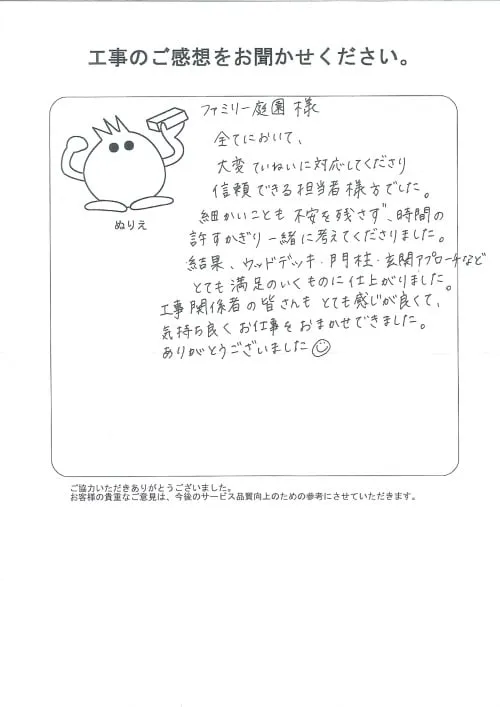 工事のご感想をお聞かせください。
ファミリー庭園 様
全てにおいて、
大変ていねいに対応してくださり
信頼できる担当者様方でした。
ぬりえ
細かいことも 不安を残さず、時間の
許すかぎり一緒に考えてくださりました。
結果、ウッドデッキ・門柱・玄関アプローチなど
とても 満足のいくものに仕上がりました。
工事関係者の皆さんも とても感じが良くて、
気持ち良く お仕事を おまかせできました。
ありがとうございました☺
ご協力いただきありがとうございました。
お客様の貴重なご意見は、今後のサービス品質向上のための参考にさせていただきます。